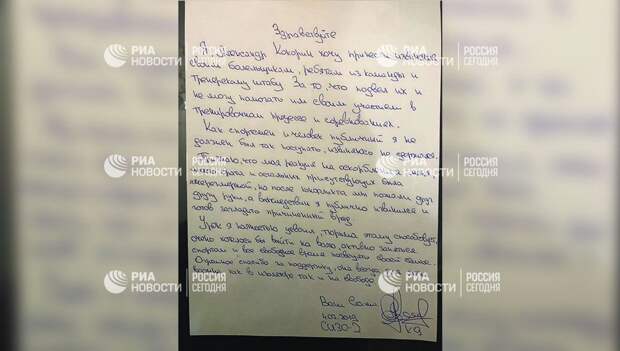 Здравствуйте
Я Александр Кокорин хочу принести извинения
своим болельщикам, ребятам из команды и
тренерскому штабу. За то, что подвел их и
не могу помогать им своим участием в
тренировочном процессе и соревнованиях.
Как спортсмен и человек публичный я не
должен был так поступать, извиняюсь не сдержался.
что моя реакция на оскорбления
и остальных присутствующих была
но после конфликта мы пожали друг
другу руки, а впоследствии я публично извинился и
готов загладить причиненный вред.
Урок я полностью усвоил, тюрьма этому способствует,
очень хотелось бы выйти на волю, активно заняться
спортом и все свободное время посвящать своей семье.
Огромное спасибо за поддержку, она всегда
важна как в изоляторе так и на свободе
Ваш Саша
2019
СИЗО-2
К9
РИА
НОВОСТИ
РОССИЯ
СЕГОДНЯ
РИА
НОВОСТИ
РОССИЯ
СЕГОДНЯ
РИА
НОВОСТИ
РОССИЯ
СЕГОДНЯ